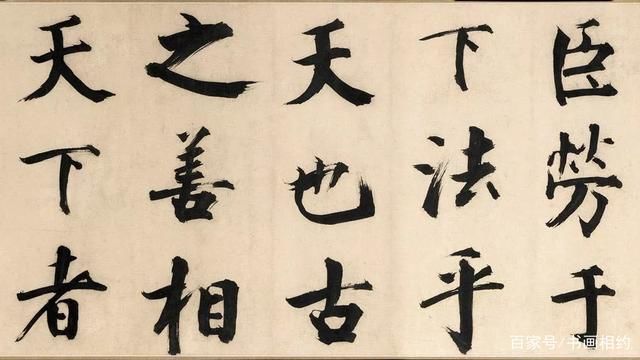 臣劳于
下法乎
天也古
之善相
天下者
百家号/书画相约